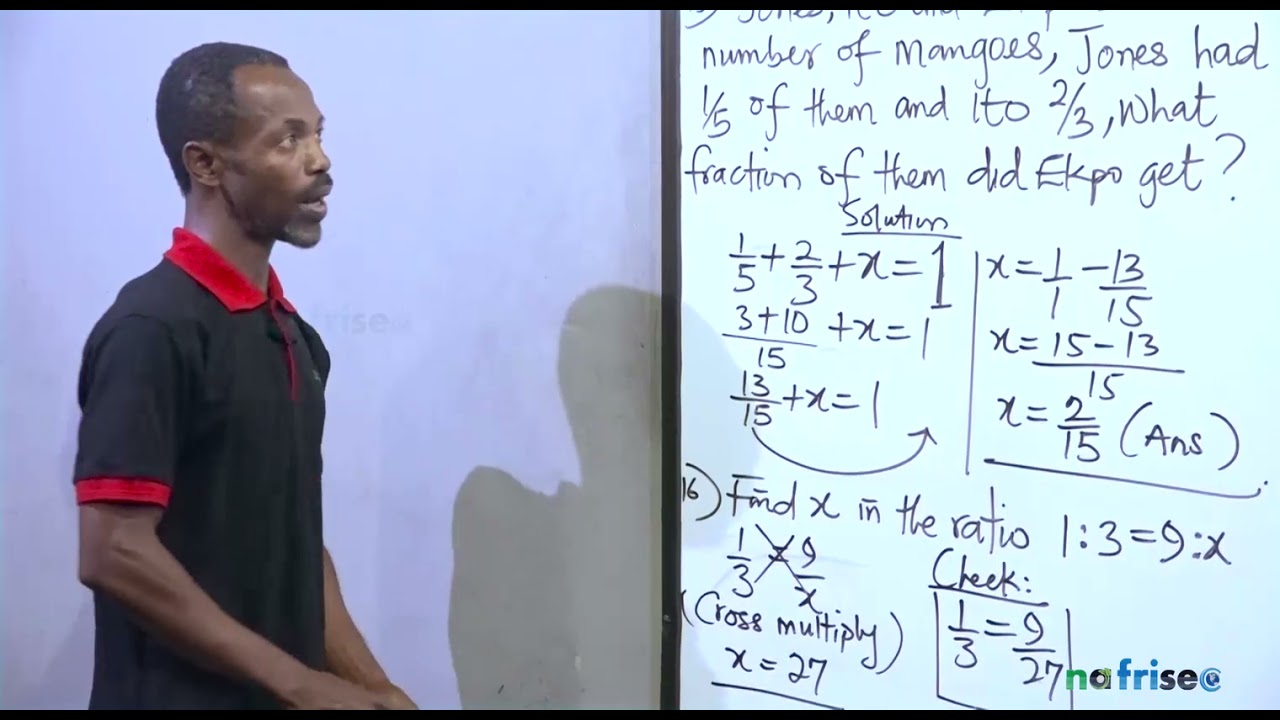 number of mangoes, Jones had
1/5 of them and Ito 2/3, What
fraction of them did Ekpo get?
Solution
1/5 + 2/3 + x = 1
3+10/15 + x = 1
13/15 + x = 1
x = 1/1 - 13/15
x = 15-13/15
x = 2/15 (Ans)
16) Find x in the ratio 1:3=9:x
1/3 = 9/x
(Cross multiply)
x = 27
Check:
1/3 = 9/27
nafrisec